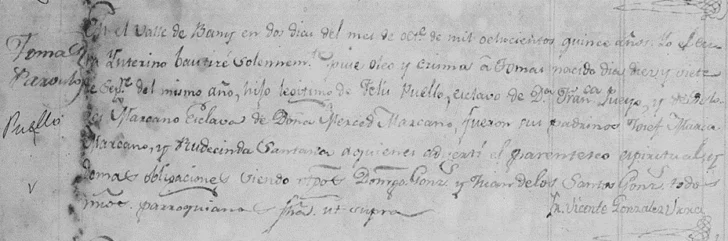 Tomas
Puello
En el Valle de Bani en dos dias del mes de octe. de mil ochocientos quince años. Yo el
Interino bautizé Solennemte. puse oleo y crisma â Tomas nacido dia diez y siete
de Sepe. del mismo año, hijo legitimo de Felis Puello, esclavo de Da. Franca. Puello, y de
Marcano Esclava de Doña Merced Marcano, fueron sus padrinos Josef Maria
Marcano, y Rudecinda Santana a quienes adverti el parentesco espiritual y
demas obligaciones siendo Domgo. Gonz. y Juan de los Santos Gonz. todos
mios parroquianos fha. ut supra
Fr. Vicente Gonzalez